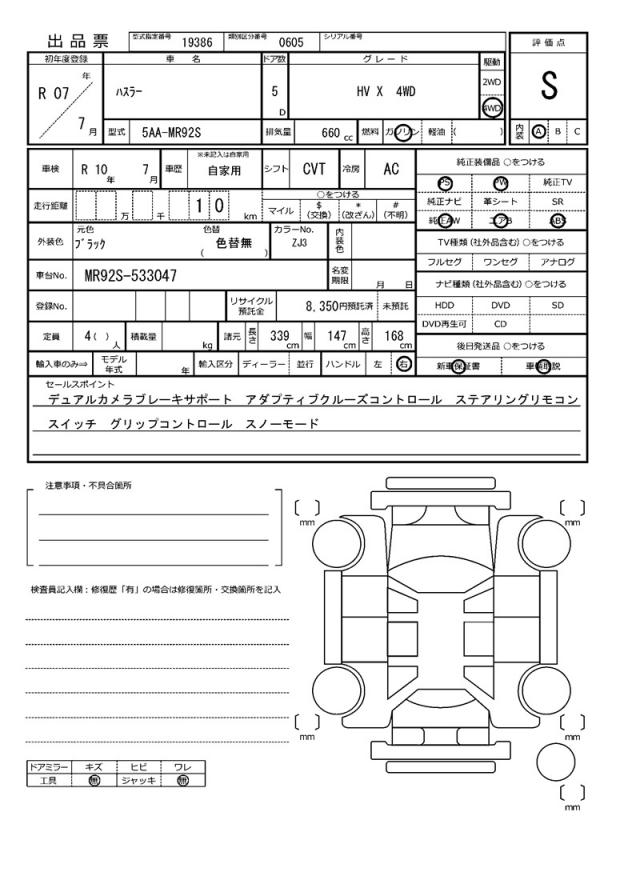 出品票 型式指定番号 19386 類別区分番号 0605 シリアル番号
初年度登録 車名 ドア数 グレード 駆動 評価点
R 07 年 7 月 ﾊｽﾗｰ 5 D HV X 4WD 2WD 4WD S
型式 5AA-MR92S 排気量 660 cc 燃料 ガソリン 軽油 ( ) 内装 A B C
車検 R 10 年 7 月 車歴 ※未記入は自家用 自家用 シフト CVT 冷房 AC 純正装備品 ○をつける
PS PW 純正TV
走行距離 万 千 1 0 km ○をつける 純正ナビ 革シート SR
マイル $(交換) *(改ざん) #(不明) 純正AW エアB ABS
外装色 元色 ﾌﾞﾗｯｸ 色替 色替無 ( ) カラーNo. ZJ3 内装色 TV種類 (社外品含む) ○をつける
フルセグ ワンセグ アナログ
車台No. MR92S-533047 名変期限 月 日 ナビ種類 (社外品含む) ○をつける
登録No. リサイクル預託金 8,350円預託済 未預託 HDD DVD SD
DVD再生可 CD
定員 4( ) 人 積載量 kg 諸元 長さ 339 cm 幅 147 cm 高さ 168 cm 後日発送品 ○をつける
輸入車のみ⇒ モデル年式 年 輸入区分 ディーラー 並行 ハンドル 左 右 新車保証書 車輌取説
セールスポイント
デュアルカメラブレーキサポート アダプティブクルーズコントロール ステアリングリモコン
スイッチ グリップコントロール スノーモード
注意事項・不具合箇所
検査員記入欄：修復歴「有」の場合は修復箇所・交換箇所を記入
mm mm
mm mm
mm
ドアミラー キズ ヒビ ワレ
工具 無 ジャッキ 無